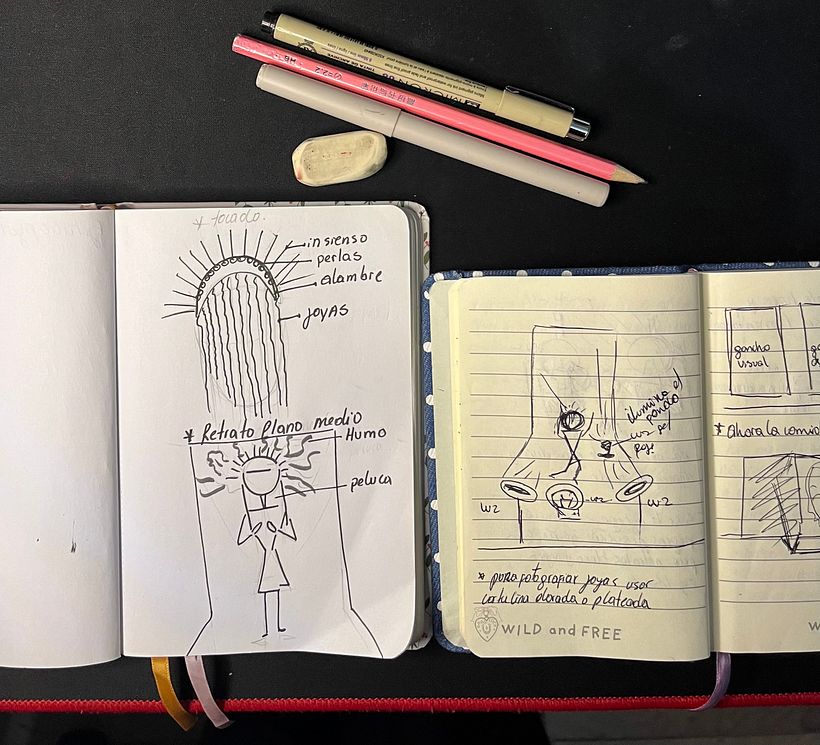 MICRON
TINTA DE ARCHIVO
HB
* tocado.
insienso
perlas
alambre
JOYAS
* Retrato Plano medio
Humo
peluca
ilumina el
luz
luz
luz
luz
* para fotografiar joyas usar
cartulina dorada o plateada
WILD and FREE
gancho
visual
* Ahora la
W